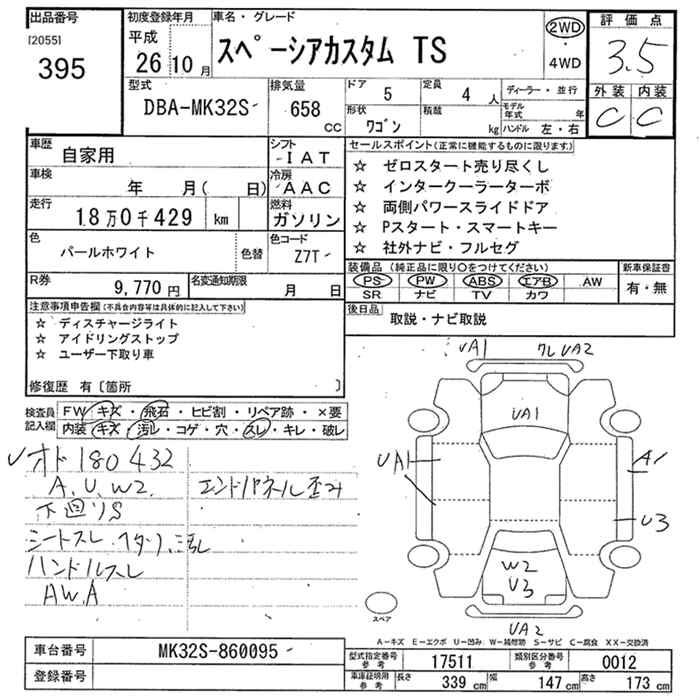 出品番号
[2055]
395
初度登録年月
平成
26年10月
車名・グレード
スペーシアカスタム TS
2WD
・
4WD
評価点
3.5
外装 内装
C C
型式
DBA-MK32S
排気量
658
CC
ドア
5
定員
4 人
形状
ワゴン
積載
kg
ディーラー・並行
モデル年式 年
ハンドル 左・右
車歴
自家用
シフト
IAT
車検
年 月( 日)
冷房
AAC
走行
18万0千429 km
燃料
ガソリン
色
パールホワイト
色替
色コード
Z7T
R券
9,770円
名変通知期限
月 日
セールスポイント(正常に機能するものに限ります)
☆ ゼロスタート売り尽くし
☆ インタークーラーターボ
☆ 両側パワースライドドア
☆ Pスタート・スマートキー
☆ 社外ナビ・フルセグ
装備品(純正品に限り○をつけてください)
PS PW ABS エアB AW
SR ナビ TV カワ
新車保証書
有・無
後日品
取説・ナビ取説
注意事項申告欄(不具合内容等は具体的に記入して下さい)
☆ ディスチャージライト
☆ アイドリングストップ
☆ ユーザー下取り車
修復歴 有〔箇所 〕
検査員記入欄
FW キズ・飛石・ヒビ割・リペア跡・×要
内装 キズ・汚レ・コゲ・穴・スレ・キレ・破レ
オド180432
A.U.W2. エンドパネル歪み
下廻りS
シートスレ.ヘタリ.汚レ
ハンドルスレ
AW.A
UA1
クレUA2
UA1
UA1
A1
U3
W2
U3
UA2
スペア
A-キズ E-エクボ U-凹み W-補修跡 S-サビ C-腐食 XX-交換済
車台番号
MK32S-860095
登録番号
型式指定番号
参考
17511
類別区分番号
参考
0012
車庫証明用
参考
長さ
339 cm
幅
147 cm
高さ
173 cm